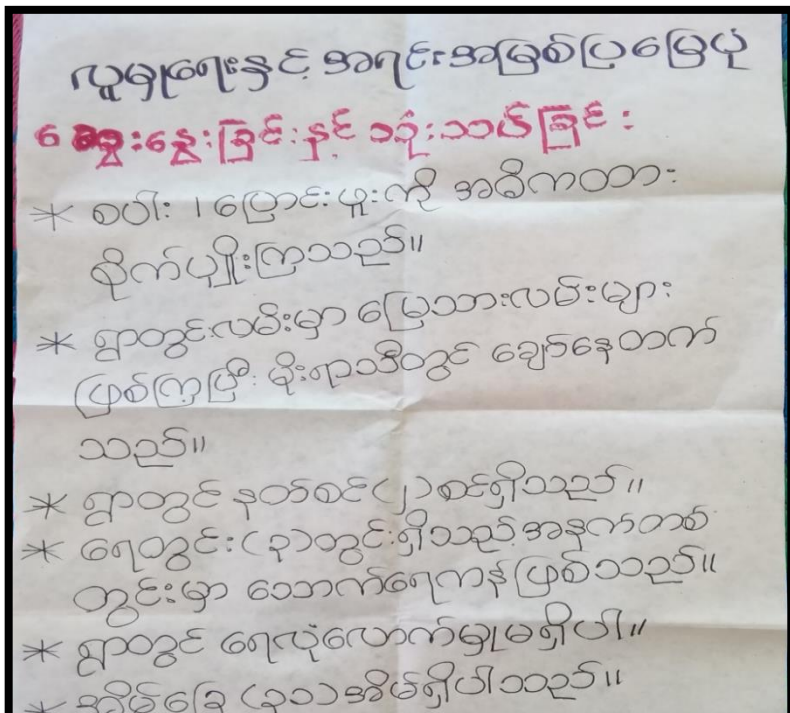 လူမှုရေးနှင့် အရင်းအမြစ်ပြမြေပုံ
ဆွေးနွေးခြင်းနှင့် သုံးသပ်ခြင်း
* စပါး ၊ ပြောင်းဖူးကို အဓိကထား
စိုက်ပျိုးကြသည်။
* ရွာတွင်းလမ်းမှာ မြေသားလမ်းများ
ဖြစ်ကြပြီး မိုးရာသီတွင် ချော်နေတက်
သည်။
* ရွာတွင် နတ်စင်(၂)စင်ရှိသည်။
* ရေတွင်း(၃)တွင်းရှိသည့်အနက်တစ်
တွင်းမှာ သောက်ရေကန်ဖြစ်သည်။
* ရွာတွင် ရေလုံလောက်မှုမရှိပါ။
* အိမ်ခြေ (၃၁)အိမ်ရှိပါသည်။